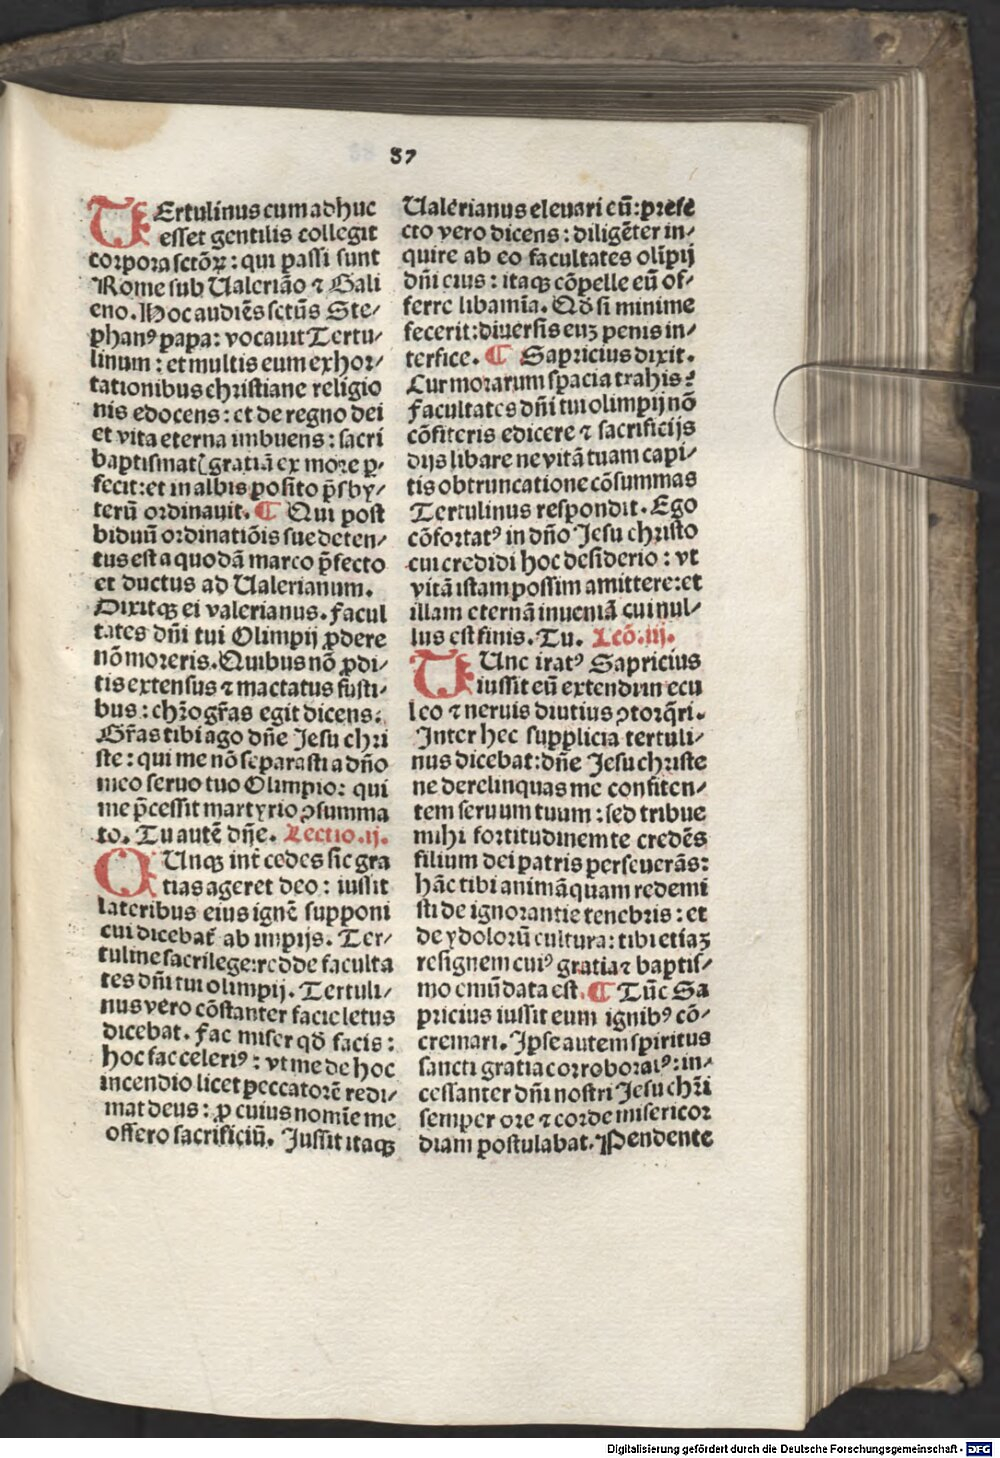 87
TErtulinus cum adhuc
esset gentilis collegit
corpora sctõꝝ : qui passi sunt
Rome sub Ualeriāo ⁊ Gali
eno. Hoc audiēs sctūs Ste⸗
phanꝰ papa: vocauit Tertu⸗
linum : et multis eum exhor⸗
tationibus christiane religio
nis edocens : et de regno dei
et vita eterna imbuens : sacri
baptismatꝭ gratiā ex more ꝑ⸗
fecit: et in albis posito p̄sby⸗
terū ordinauit. ¶ Qui post
biduū ordinatiōis sue deten⸗
tus est a quodā marco p̄fecto
et ductus ad Ualerianum.
Dixitqꝫ ei valerianus. Facul
tates dñi tui Olimpij ꝓdere
nō moreris. Quibus nō ꝓdi⸗
tis extensus ⁊ mactatus fusti⸗
bus : chꝛo gr̃as egit dicens:
Gr̃as tibi ago dñe Jesu chri
ste : qui me nō separasti a dño
meo seruo tuo Olimpio: qui
me p̄cessit martyrio ꝯsumma
to. Tu autē dñe. Lectio .ij.
QUnqꝫ int̃ cedes sic gra
tias ageret deo : iussit
lateribus eius ignē supponi
cui dicebat̃ ab impijs. Ter⸗
tuline sacrilege: redde faculta
tes dñi tui olimpij. Tertuli⸗
nus vero cōstanter facie letus
dicebat. Fac miser qđ facis :
hoc fac celeriꝰ : vt me de hoc
incendio licet peccatorē redi⸗
mat deus : ꝓ cuius nomīe me
offero sacrificiū. Jussit itaqꝫ
Ualerianus eleuari eū: prefe
cto vero dicens : diligēter in⸗
quire ab eo facultates olīpij
dñi eius : itaqꝫ cōpelle eū of⸗
ferre libamīa. Qđ si minime
fecerit: diuersis euꝫ penis in⸗
terfice. ¶ Sapricius dixit.
Cur morarum spacia trahis?
facultates dñi tui olimpij nō
cōfiteris edicere ⁊ sacrificijs
dijs libare ne vitā tuam capi⸗
tis obtruncatione cōsummas
Tertulinus respondit. Ego
cōfortatꝰ in dño Jesu christo
cui credidi hoc desiderio : vt
vitā istam possim amittere: et
illam eternā inueniā cui nul⸗
lus est finis. Tu. Lcō. iij.
TUnc iratꝰ Sapricius
iussit eū extendi in ecu
leo ⁊ neruis diutius ꝯtorq̄ri.
Inter hec supplicia tertuli⸗
nus dicebat: dñe Jesu christe
ne derelinquas me confiten⸗
tem seruum tuum : sed tribue
mihi fortitudinem te credēs
filium dei patris perseuerās:
hāc tibi animā quam redemi
sti de ignorantie tenebris : et
de ydolorū cultura: tibi etiaꝫ
resignem cuiꝰ gratia ⁊ baptis⸗
mo emūdata est. ¶ Tūc Sa
pricius iussit eum ignibꝰ cō⸗
cremari. Ipse autem spiritus
sancti gratia corroboratꝰ: in⸗
cessanter dñi nostri Jesu chꝛi
semper ore ⁊ corde misericor
diam postulabat. Pendente
Digitalisierung gefördert durch die Deutsche Forschungsgemeinschaft - DFG